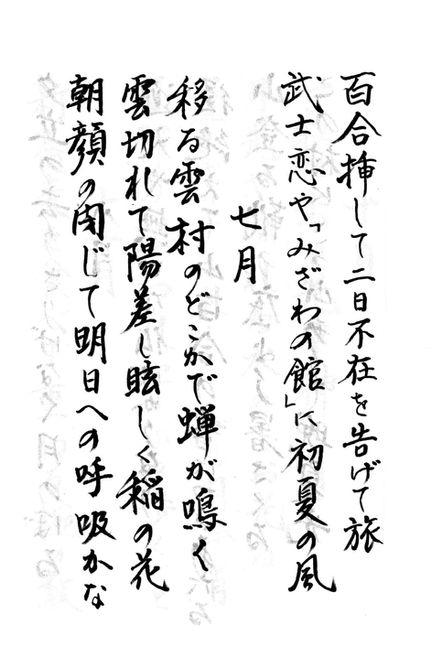 百合挿して二日不在を告げて旅
武士恋や「みざわの館」に初夏の風
七月
移る雲村のどこかで蝉が鳴く
雲切れて陽差し眩しく稲の花
朝顔の閉じて明日への呼吸かな